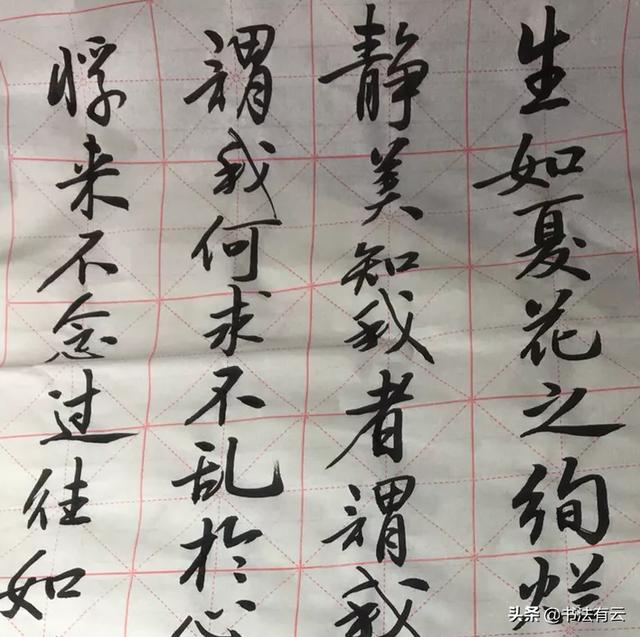 生如夏花之绚烂
静美知我者謂我
謂我何求不乱於心
将来不念过往如
头条 @书法有云